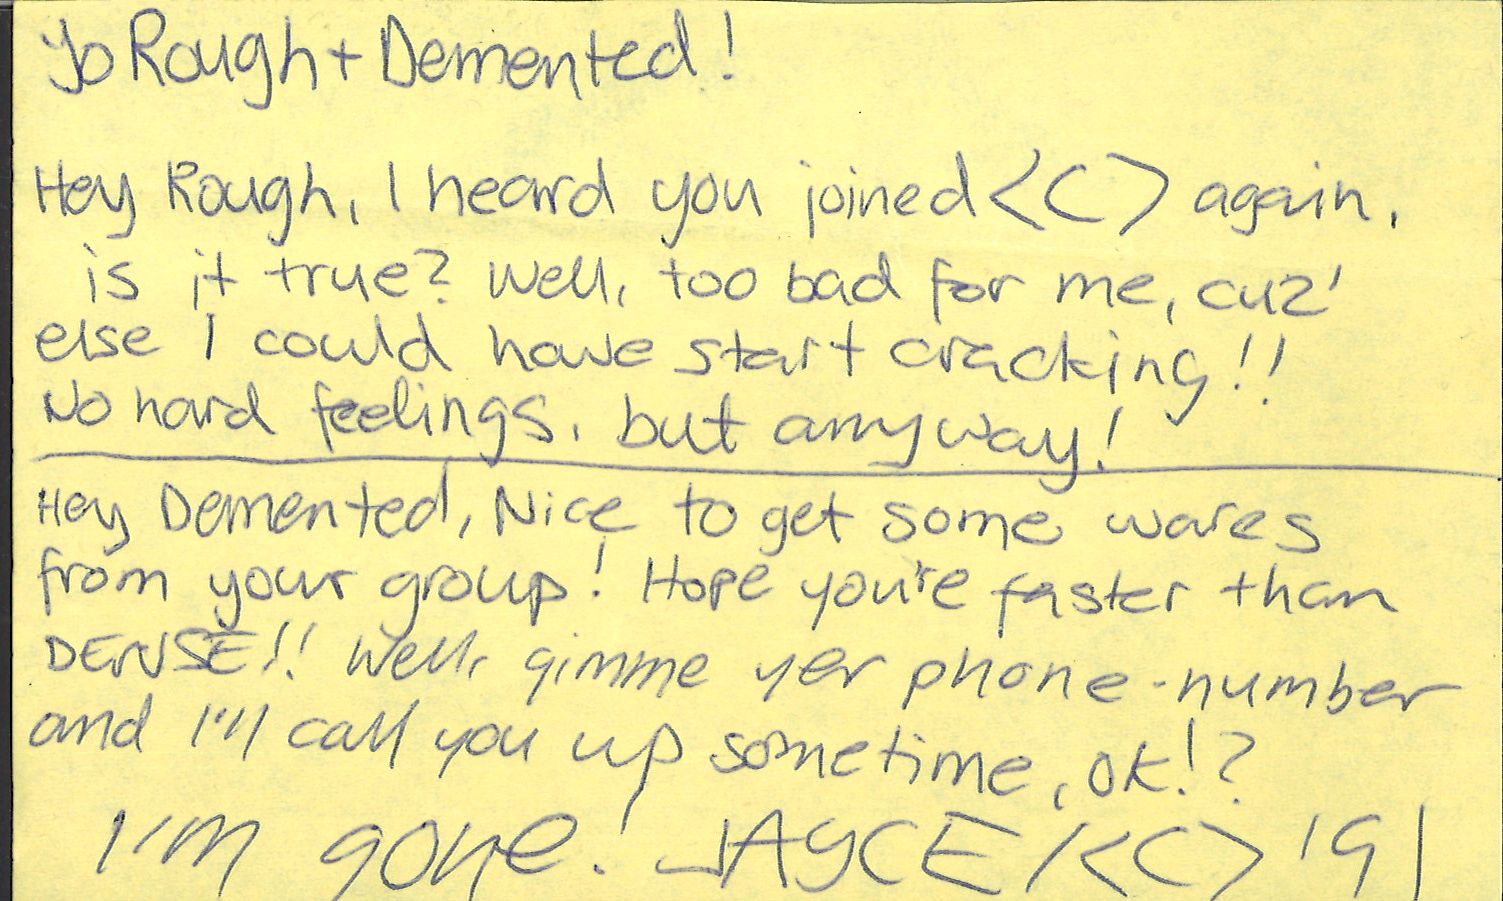 Yo Rough + Demented!
Hey Rough, I heard you joined <C> again,
is it true? Well, too bad for me, cuz'
else I could have start cracking!!
No hard feelings, but anyway!
Hey Demented, Nice to get some wares
from your group! Hope you're faster than
DENSE!! Well, gimme yer phone-number
and I'll call you up sometime, ok!?
I'm gone! JAYCE/<C> '91